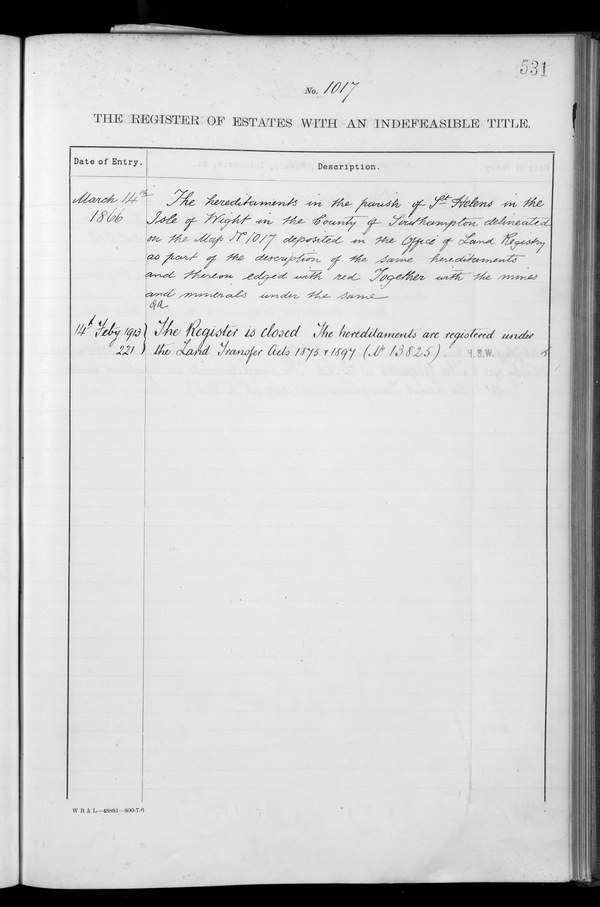 531
No. 1017
THE REGISTER OF ESTATES WITH AN INDEFEASIBLE TITLE.
Date of Entry.
Description.
March 14th
1866
The hereditaments in the parish of St Helens in the
Isle of Wight in the County of Southampton delineated
on the Map No 1017 deposited in the Office of Land Registry
as part of the description of the same hereditaments
and thereon edged with red Together with the mines
and minerals under the same
14th Feby 1913
221
The Register is closed The hereditaments are registered under
the Land Transfer Acts 1875 & 1897 (No 13825)
W B & L—48881—800-7-6